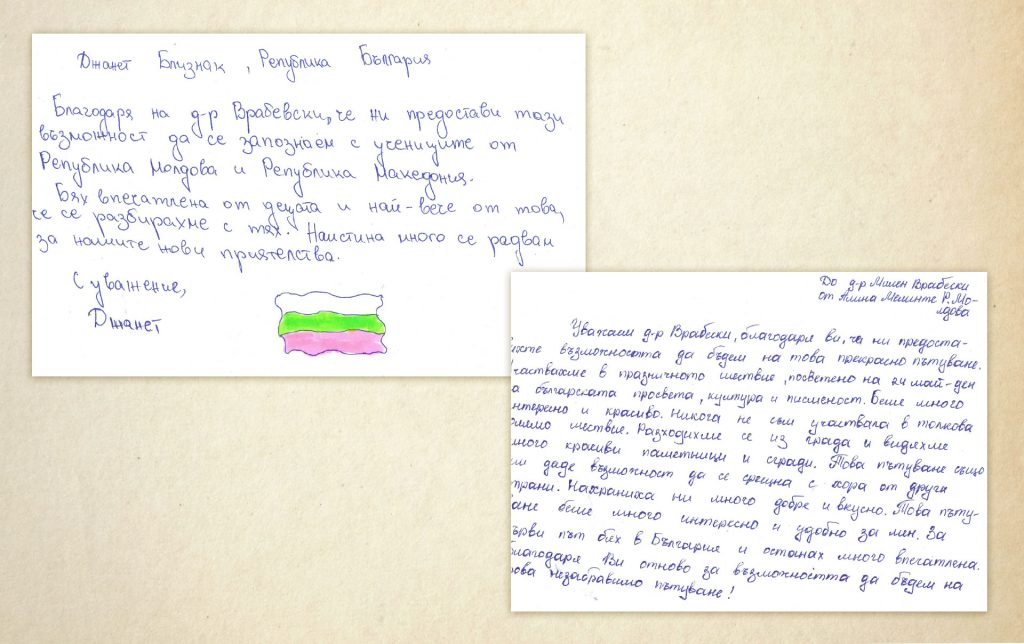 Джанет Близнак, Република България
Благодаря на д-р Врабевски, че ни предостави тази
възможност да се запознаем с учениците от
Република Молдова и Република Македония.
Бях впечатлена от децата и най-вече от това,
че се разбирахме с тях. Наистина много се радвам
за нашите нови приятелства.
С уважение,
Джанет
До д-р Милен Врабески
от Алина Меминте Р. Мо-
лдова
Уважаем д-р Врабески, благодаря ви, че ни предоста-
ихте възможността да бъдем на това прекрасно пътуване.
частвахме в празничното шествие, посветено на 24 май-ден
а българската просвета, култура и писменост. Беше много
нтересно и красиво. Никога не съм участвала в толкова
олямо шествие. Разходихме се из града и видяхме
много красиви паметници и сгради. Това пътуване също
ми даде възможност да се срещна с хора от други
трани. Нахраниха ни много добре и вкусно. Това пъту-
ане беше много интересно и удобно за мен. За
ърви път бях в България и останах много впечатлена.
благодаря Ви отново за възможността да бъдем на
ова незабравимо пътуване!